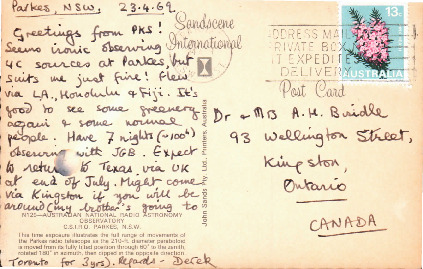 Parkes, NSW, 23.4.69
Greetings from PKS!
Seems ironic observing
4C sources at Parkes, but
suits me just fine! Flew
via LA, Honolulu & Fiji. It's
good to see some greenery
again & some normal
people. Have 7 nights (~100h)
observing with JGB. Expect
to return to Texas via UK
at end of July. Might come
via Kingston if you will be
around (my brother's going to
Toronto for 3yrs). Regards - Derek
N125—AUSTRALIAN NATIONAL RADIO ASTRONOMY
OBSERVATORY
C.S.I.R.O. PARKES, N.S.W.
This time exposure illustrates the full range of movements of
the Parkes radio telescope as the 210-ft. diameter paraboloid
is moved from its fully tilted position through 60° to the zenith,
rotated 180° in azimuth, then dipped in the opposite direction
Sandscene
International
John Sands Pty. Ltd., Printers, Australia
Post Card
ADDRESS MAIL
PRIVATE BOX
IT EXPEDITE
DELIVERY
13c
AUSTRALIA
Dr & Mrs A.H. Bridle
93 Wellington Street,
Kingston,
Ontario
CANADA